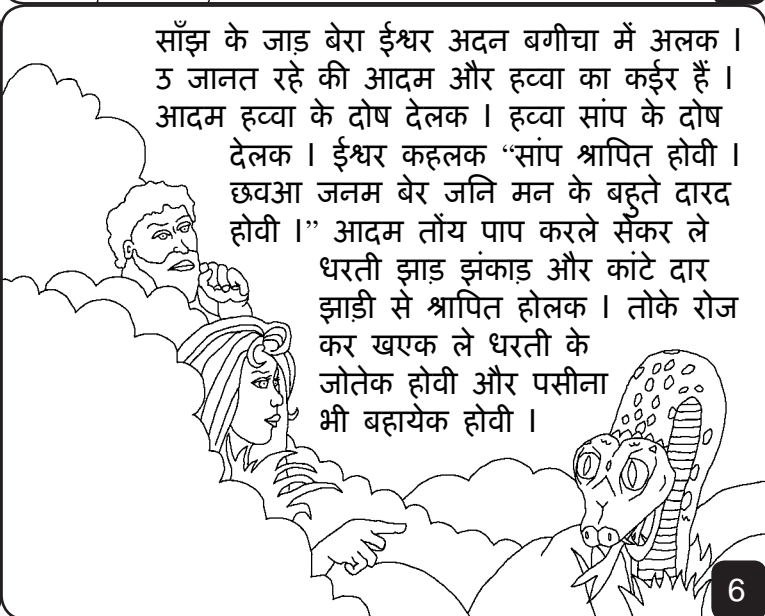 साँझ के जाड़ बेरा ईश्वर अदन बगीचा में अलक ।
उ जानत रहे की आदम और हव्वा का कईर हैं ।
आदम हव्वा के दोष देलक । हव्वा सांप के दोष
देलक । ईश्वर कहलक “सांप श्रापित होवी ।
छवआ जनम बेर जनि मन के बहुते दारद
होवी ।” आदम तोंय पाप करले सेकर ले
धरती झाड़ झंकाड़ और कांटे दार
झाड़ी से श्रापित होलक । तोके रोज
कर खएक ले धरती के
जोतेक होवी और पसीना
भी बहायेक होवी ।
6